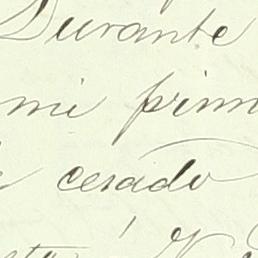 Durante
mi prim
cesado